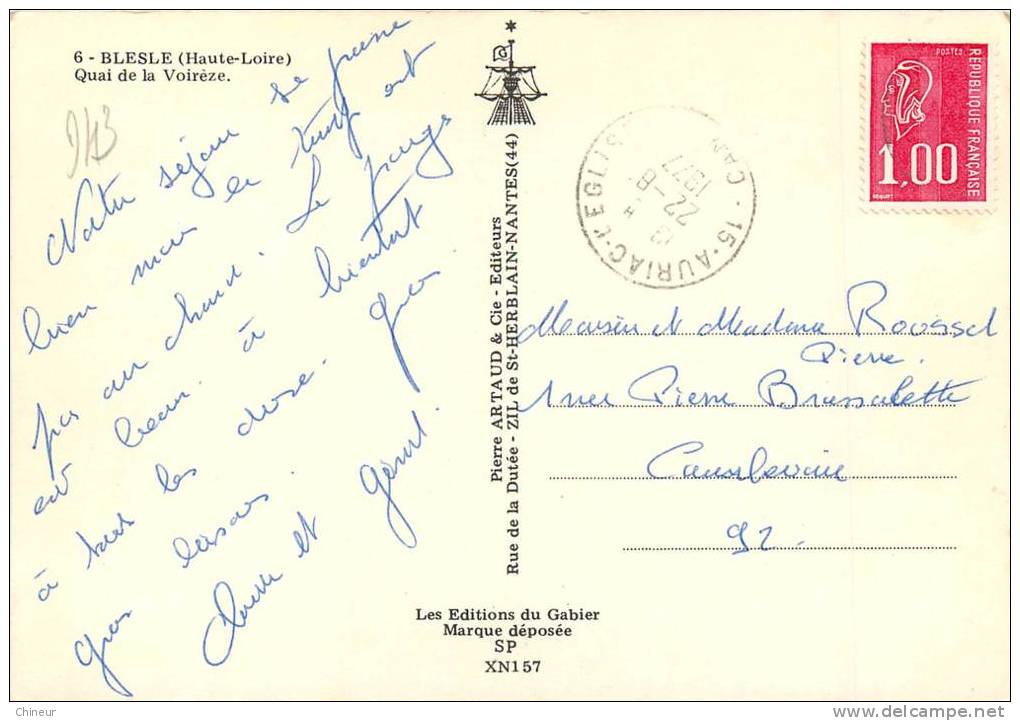 6 - BLESLE (Haute-Loire)
Quai de la Voirèze.
Notre séjour se passe
bien mais le temps ont
pas au chaud. Le pays
est beau. à bientôt
à tous les deux. gros
gros baisers.
et Gérard.
Pierre ARTAUD & Cie - Editeurs
Rue de la Dutée - ZIL de St-HERBLAIN-NANTES(44)
Les Editions du Gabier
Marque déposée
SP
XN157
15-AURIAC-L'EGLISE
CAN
22-8
1977
POSTES
REPUBLIQUE FRANÇAISE
1,00
Monsieur et Madame Roussel
Pierre.
1 rue Pierre Brossolette
Courbevoie
92.
Chineur
delcampe.net